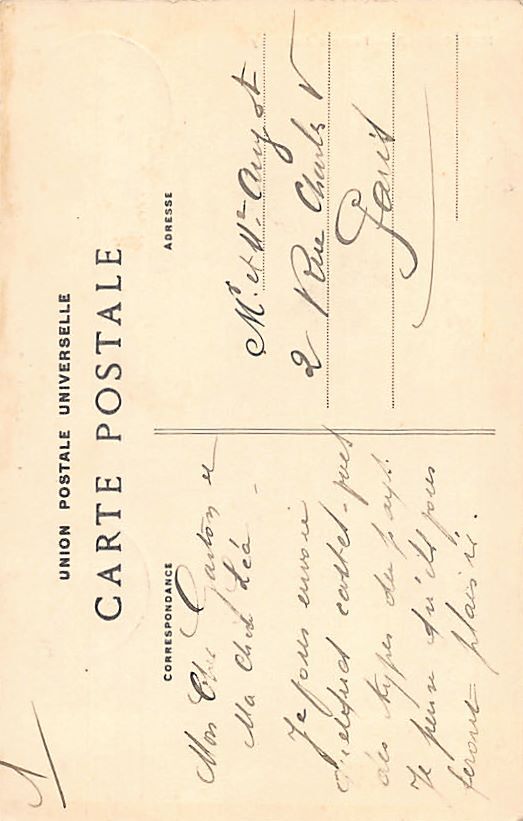 1
UNION POSTALE UNIVERSELLE
CARTE POSTALE
CORRESPONDANCE
Mon Cher Gaston et
Ma Chère Léa -
Je vous envoie
quelques cartes-vues
des types du pays.
Je pense qu'ils vous
feront plaisir.
ADRESSE
Mr. et Mme Angot
2 Rue Charles V
Paris